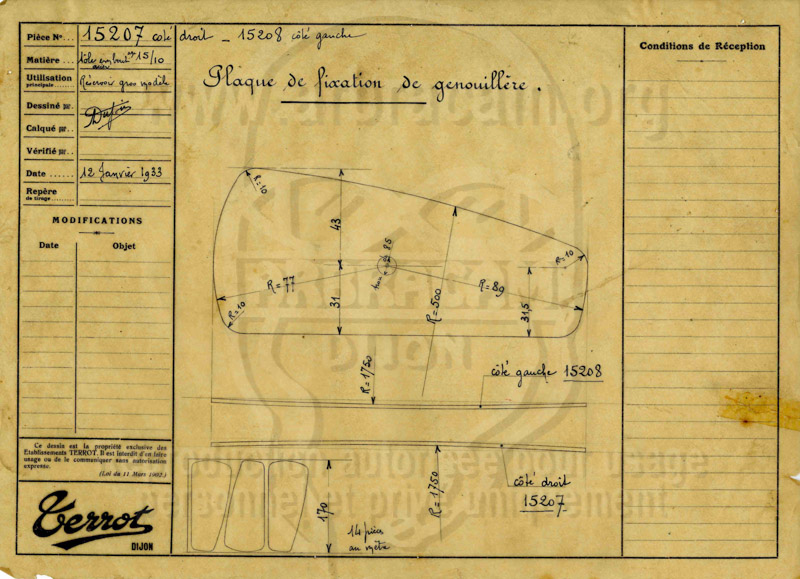 Pièce Nº... 15207 coté droit _ 15208 côté gauche
Matière ... tôles 15/10
Utilisation
principale
Réservoir gros modèle
Dessiné par.
Calqué par..
Vérifié par..
Date ...... 12 Janvier 1933
Repère
de tirage
MODIFICATIONS
Date Objet
Plaque de fixation de genouillère.
Conditions de Réception
R=10
43
R=10
85
R=77
R=89
31
R=10
R=500
31,5
R=1750
côté gauche 15208
côté droit
15207
R=1750
170
14 pièces
au mètre
Ce dessin est la propriété exclusive des
Etablissements TERROT. Il est interdit d'en faire
usage ou de le communiquer sans autorisation
expresse.
(Loi du 11 Mars 1902.)
Terrot
DIJON
DIJON